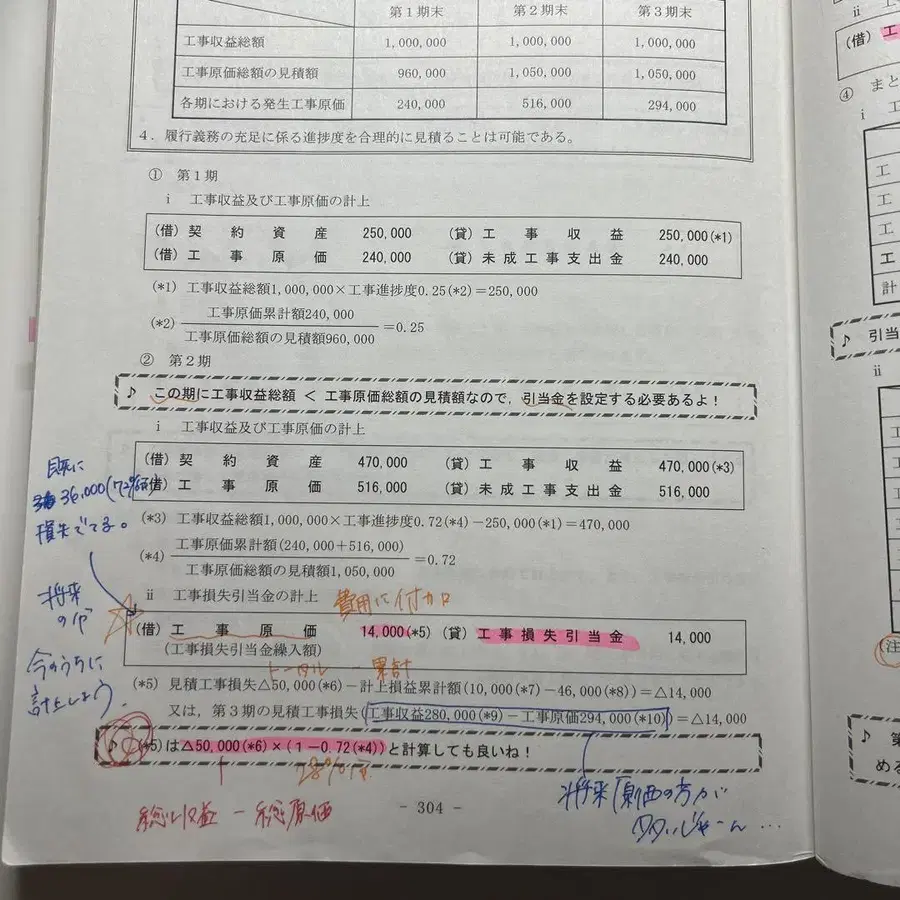 第1期末 第2期末 第3期末
工事収益総額 1,000,000 1,000,000 1,000,000
工事原価総額の見積額 960,000 1,050,000 1,050,000
各期における発生工事原価 240,000 516,000 294,000
4．履行義務の充足に係る進捗度を合理的に見積ることは可能である。
① 第1期
ⅰ 工事収益及び工事原価の計上
(借) 契約資産 250,000 (貸) 工事収益 250,000(*1)
(借) 工事原価 240,000 (貸) 未成工事支出金 240,000
(*1) 工事収益総額1,000,000×工事進捗度0.25(*2)＝250,000
(*2) 工事原価累計額240,000
工事原価総額の見積額960,000 ＝0.25
② 第2期
♪ この期に工事収益総額 ＜ 工事原価総額の見積額なので，引当金を設定する必要あるよ！
ⅰ 工事収益及び工事原価の計上
(借) 契約資産 470,000 (貸) 工事収益 470,000(*3)
(借) 工事原価 516,000 (貸) 未成工事支出金 516,000
(*3) 工事収益総額1,000,000×工事進捗度0.72(*4)－250,000(*1)＝470,000
(*4) 工事原価累計額(240,000＋516,000)
工事原価総額の見積額1,050,000 ＝0.72
ⅱ 工事損失引当金の計上
費用に付加
(借) 工事原価 14,000(*5) (貸) 工事損失引当金 14,000
(工事損失引当金繰入額)
トータル － 累計
(*5) 見積工事損失△50,000(*6)－計上損益累計額(10,000(*7)－46,000(*8))＝△14,000
又は，第3期の見積工事損失(工事収益280,000(*9)－工事原価294,000(*10))＝△14,000
♪ (*5)は△50,000(*6)×(1－0.72(*4))と計算しても良いね！
28%分
総収益 － 総原価
既に
36,000(72%分)
損失でてる。
将来
の分
今のうちに
計上しよう
将来「原価の方が
タタいじゃーん…
－ 304 －
ⅱ
(借) 工
④ まと
ⅰ 工
工
工
工
工
計
♪ 引当
ⅱ
(注
♪ 第
める